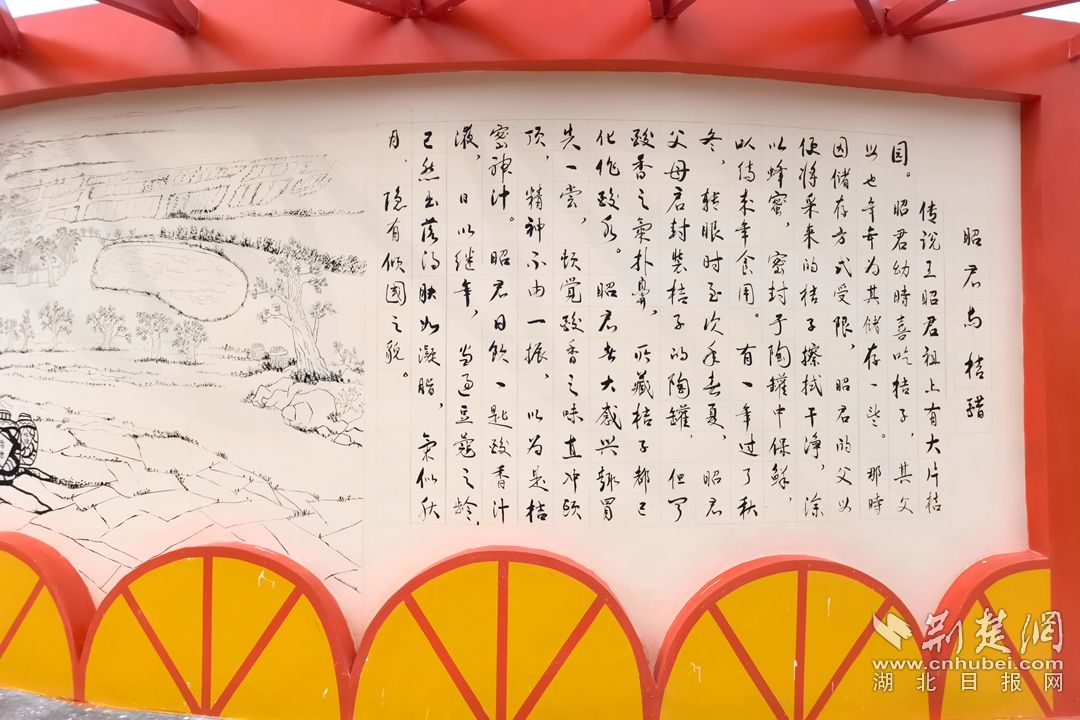 昭君与桔醋
传说王昭君祖上有大片桔
园。昭君幼時喜吃桔子，其父
世年年为其储存一些。那時
因储存方式受限，昭君的父以
便将采来的桔子擦拭干净，涂
以蜂蜜，密封于陶罐中保鲜，
以待来年食用。有一年过了秋
冬，转眼时至次年春夏，昭君
父母启封装桔子的陶罐，但闻
酸香之氣扑鼻，所藏桔子都已
化作酸水。昭君老大感兴趣冒
失一尝，顿觉酸香之味直冲頭
顶，精神不由一振，以为是桔
密神汁。昭君日飲一匙酸香汁
液，日以继年，当过豆蔻之龄，
已然出落得肤如凝脂，氣似秋
月，隐有倾國之貌。
荆楚網
www.cnhubei.com
湖北日报网